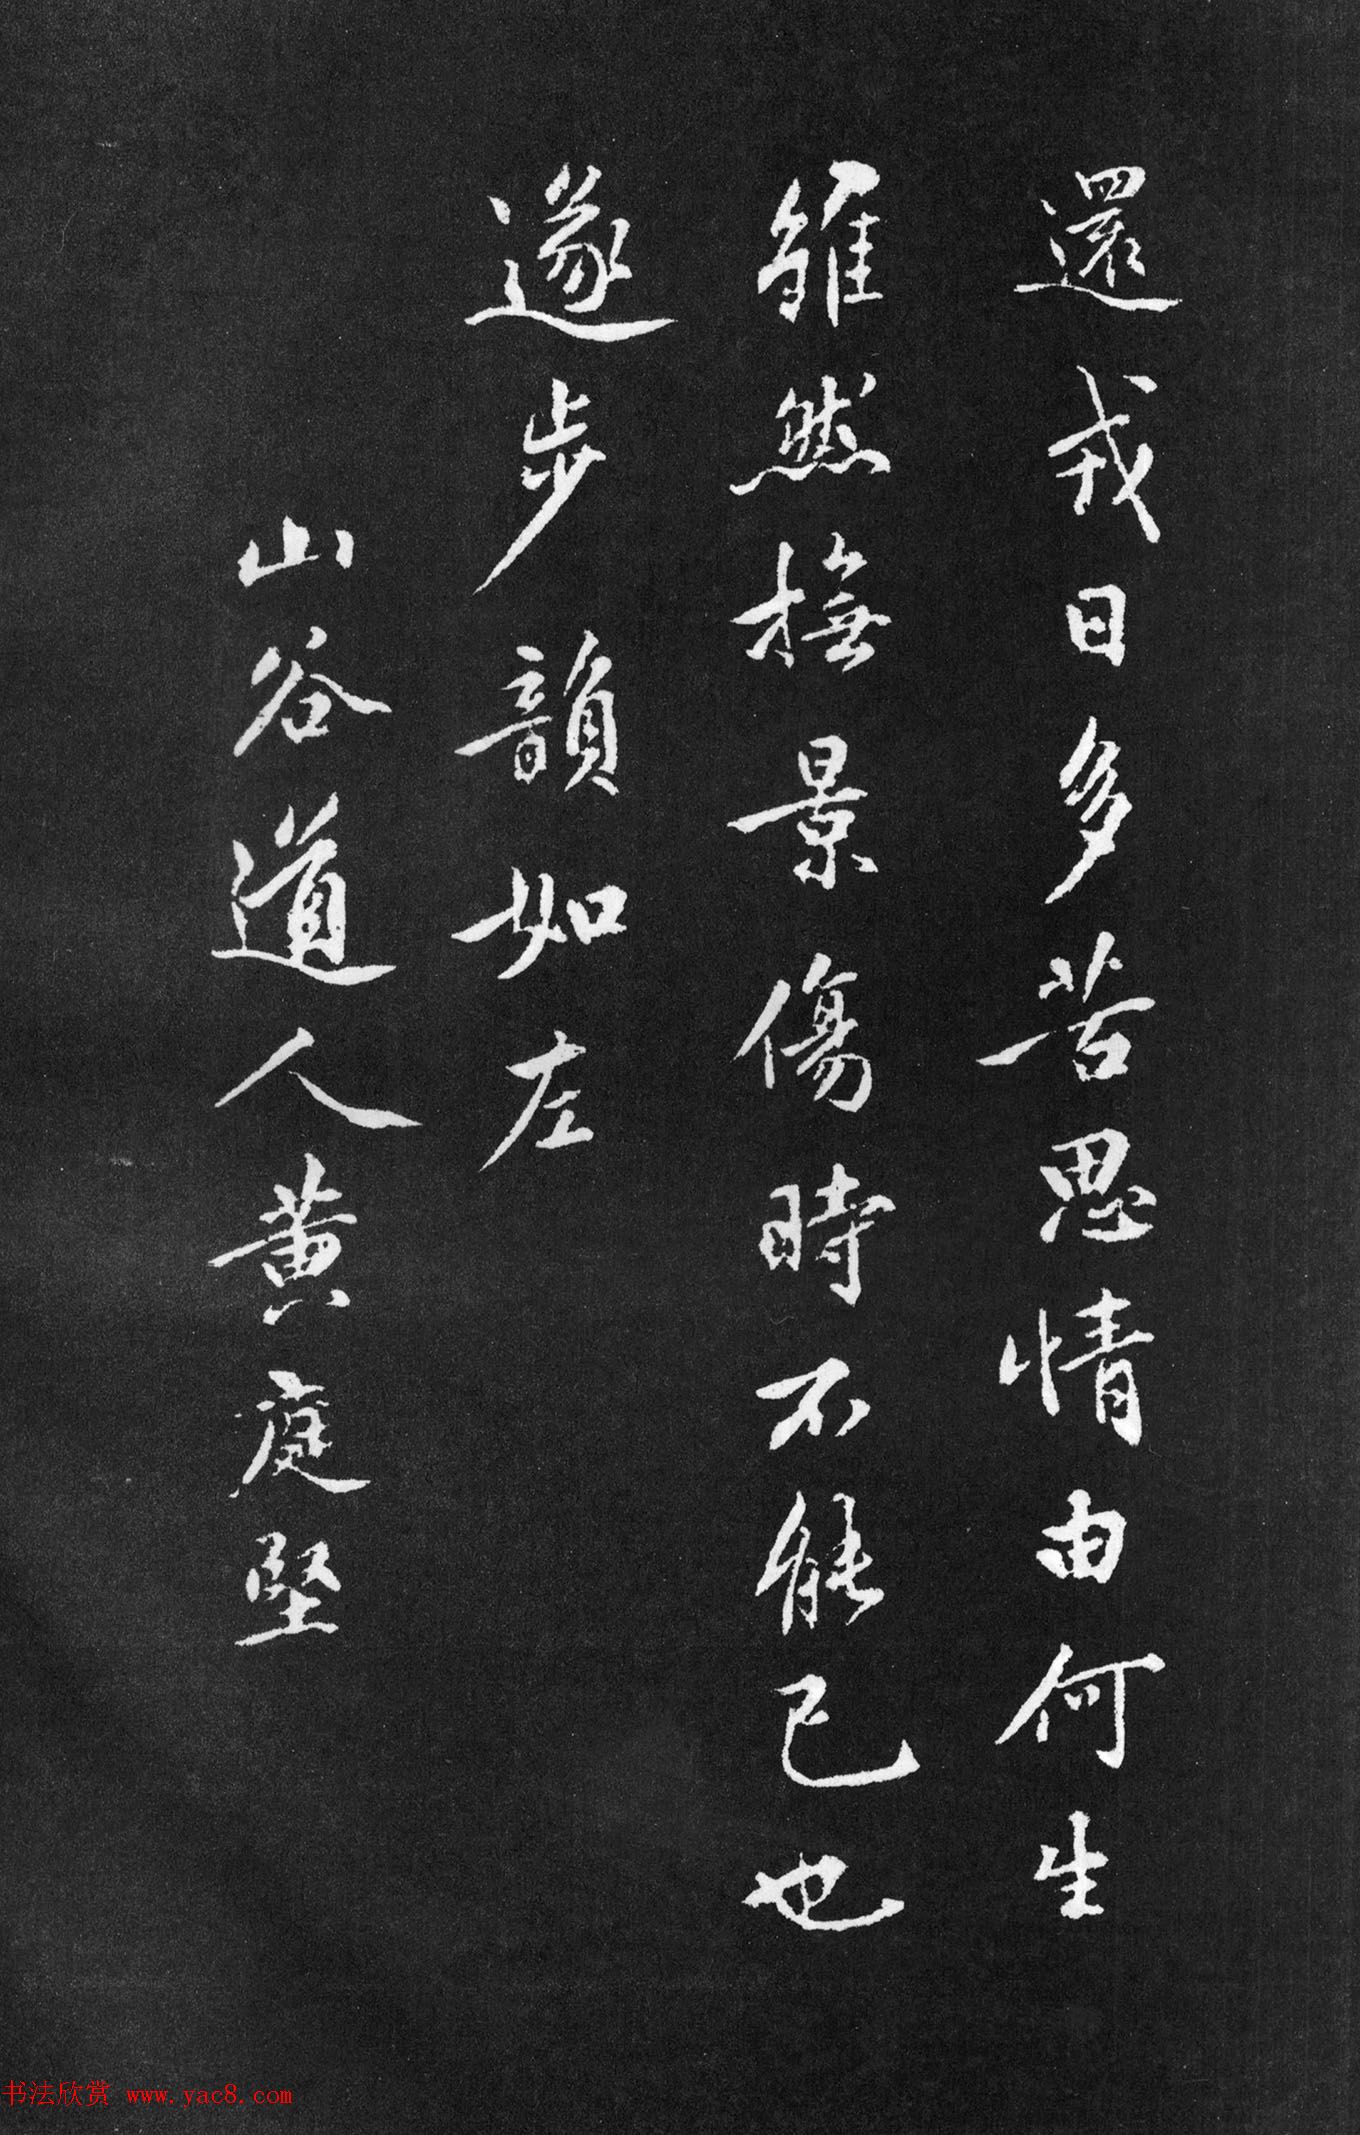 還戎日多苦思情由何生
雖然撫景傷時不能已也
遂步韻如左
山谷道人黄庭堅
书法欣赏 www.yac8.com